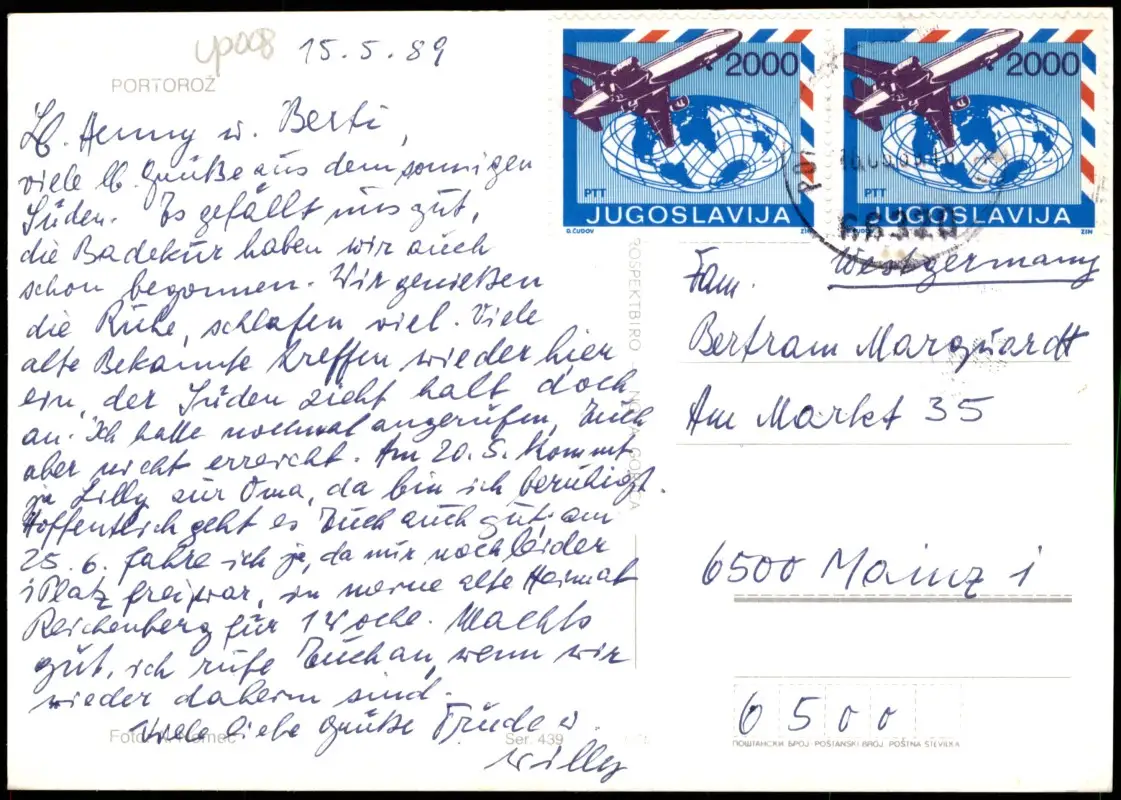 up008
15.5.89
PORTOROŽ
Lb. Henny u. Berti,
viele lb. Grüße aus dem sonnigen
Süden. Es gefällt uns gut,
die Badekur haben wir auch
schon begonnen. Wir genießen
die Ruhe, schlafen viel. Viele
alte Bekannte treffen wieder hier
ein, der Süden zieht halt doch
an. Ich hatte nochmal angerufen, Euch
aber nicht erreicht. Am 20.5. kommt
ja Lilly zur Oma, da bin ich beruhigt.
Hoffentlich geht es Euch auch gut, am
25.6. fahre ich ja, da nur noch leider
1 Platz frei war, in meine alte Heimat
Reichenberg für 1 Woche. Machts
gut, ich rufe Euch an, wenn wir
wieder daheim sind.
Viele liebe Grüße Trude u.
Willy
Foto:
Ser. 439
2000
PTT
JUGOSLAVIJA
D. ČUDOV
ZIN
2000
PTT
JUGOSLAVIJA
ZIN
66320
Westgermany
Fam.
Bertram Marquardt
Am Markt 35
6500 Mainz 1
6500
ПОШТАНСКИ БРОЈ POŠTANSKI BROJ POŠTNA ŠTEVILKA